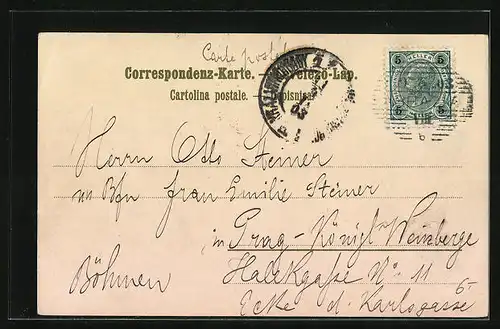 Carte postale
Correspondenz-Karte. — Levelező-Lap.
Cartolina postale. — Dopisnica.
5 HELLER 5
5 5
6
Herrn Otto Steiner
Frau Emilie Steiner
in Prag-Königl Weinberge
Böhmen
Halekgasse No 11
6-
Ecke d. Karlsgasse